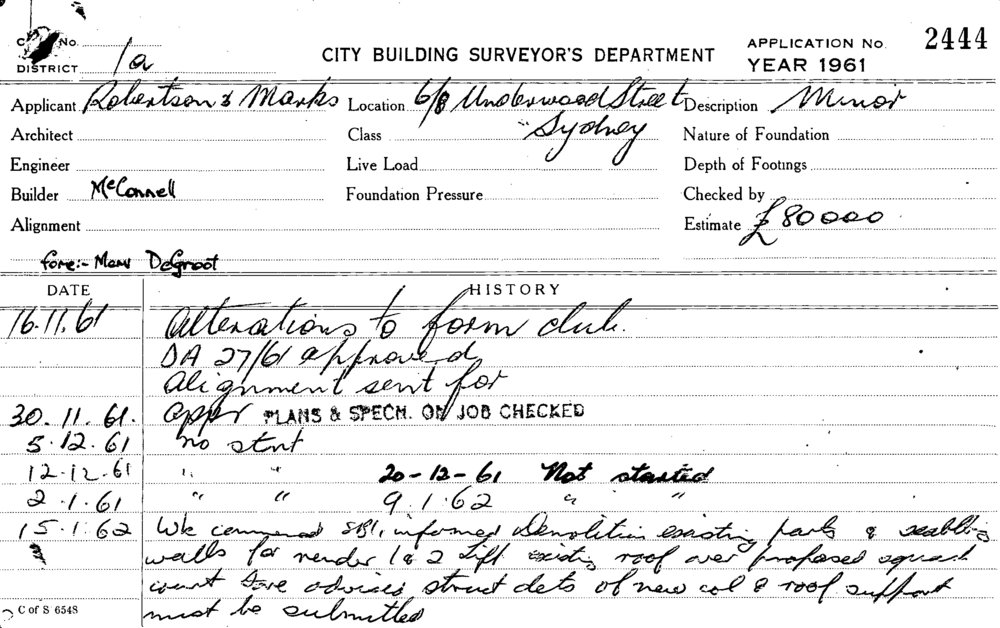 No.
DISTRICT 1a
CITY BUILDING SURVEYOR'S DEPARTMENT
APPLICATION No. 2444
YEAR 1961
Applicant Robertson & Marks Location 6/8 Underwood Street Description Minor
Architect Class Sydney Nature of Foundation
Engineer Live Load Depth of Footings
Builder McConnell Foundation Pressure Checked by
Alignment Estimate £80000
fore:- Mems DeGroot
DATE HISTORY
16.11.61 Alterations to form club.
DA 27/61 approved
Alignment sent for
30.11.61. appr PLANS & SPECN. ON JOB CHECKED
5.12.61 no start
12.12.61 " " 20-12-61 Not started
2.1.61 " " 9.1.62 " "
15.1.62 Wk commenced informed Demolition existing parts & scabbling
walls for render 1 & 2 Lift existing roof over proposed squash
court Fore advised struct dets of new col & roof support
must be submitted
C of S 6548